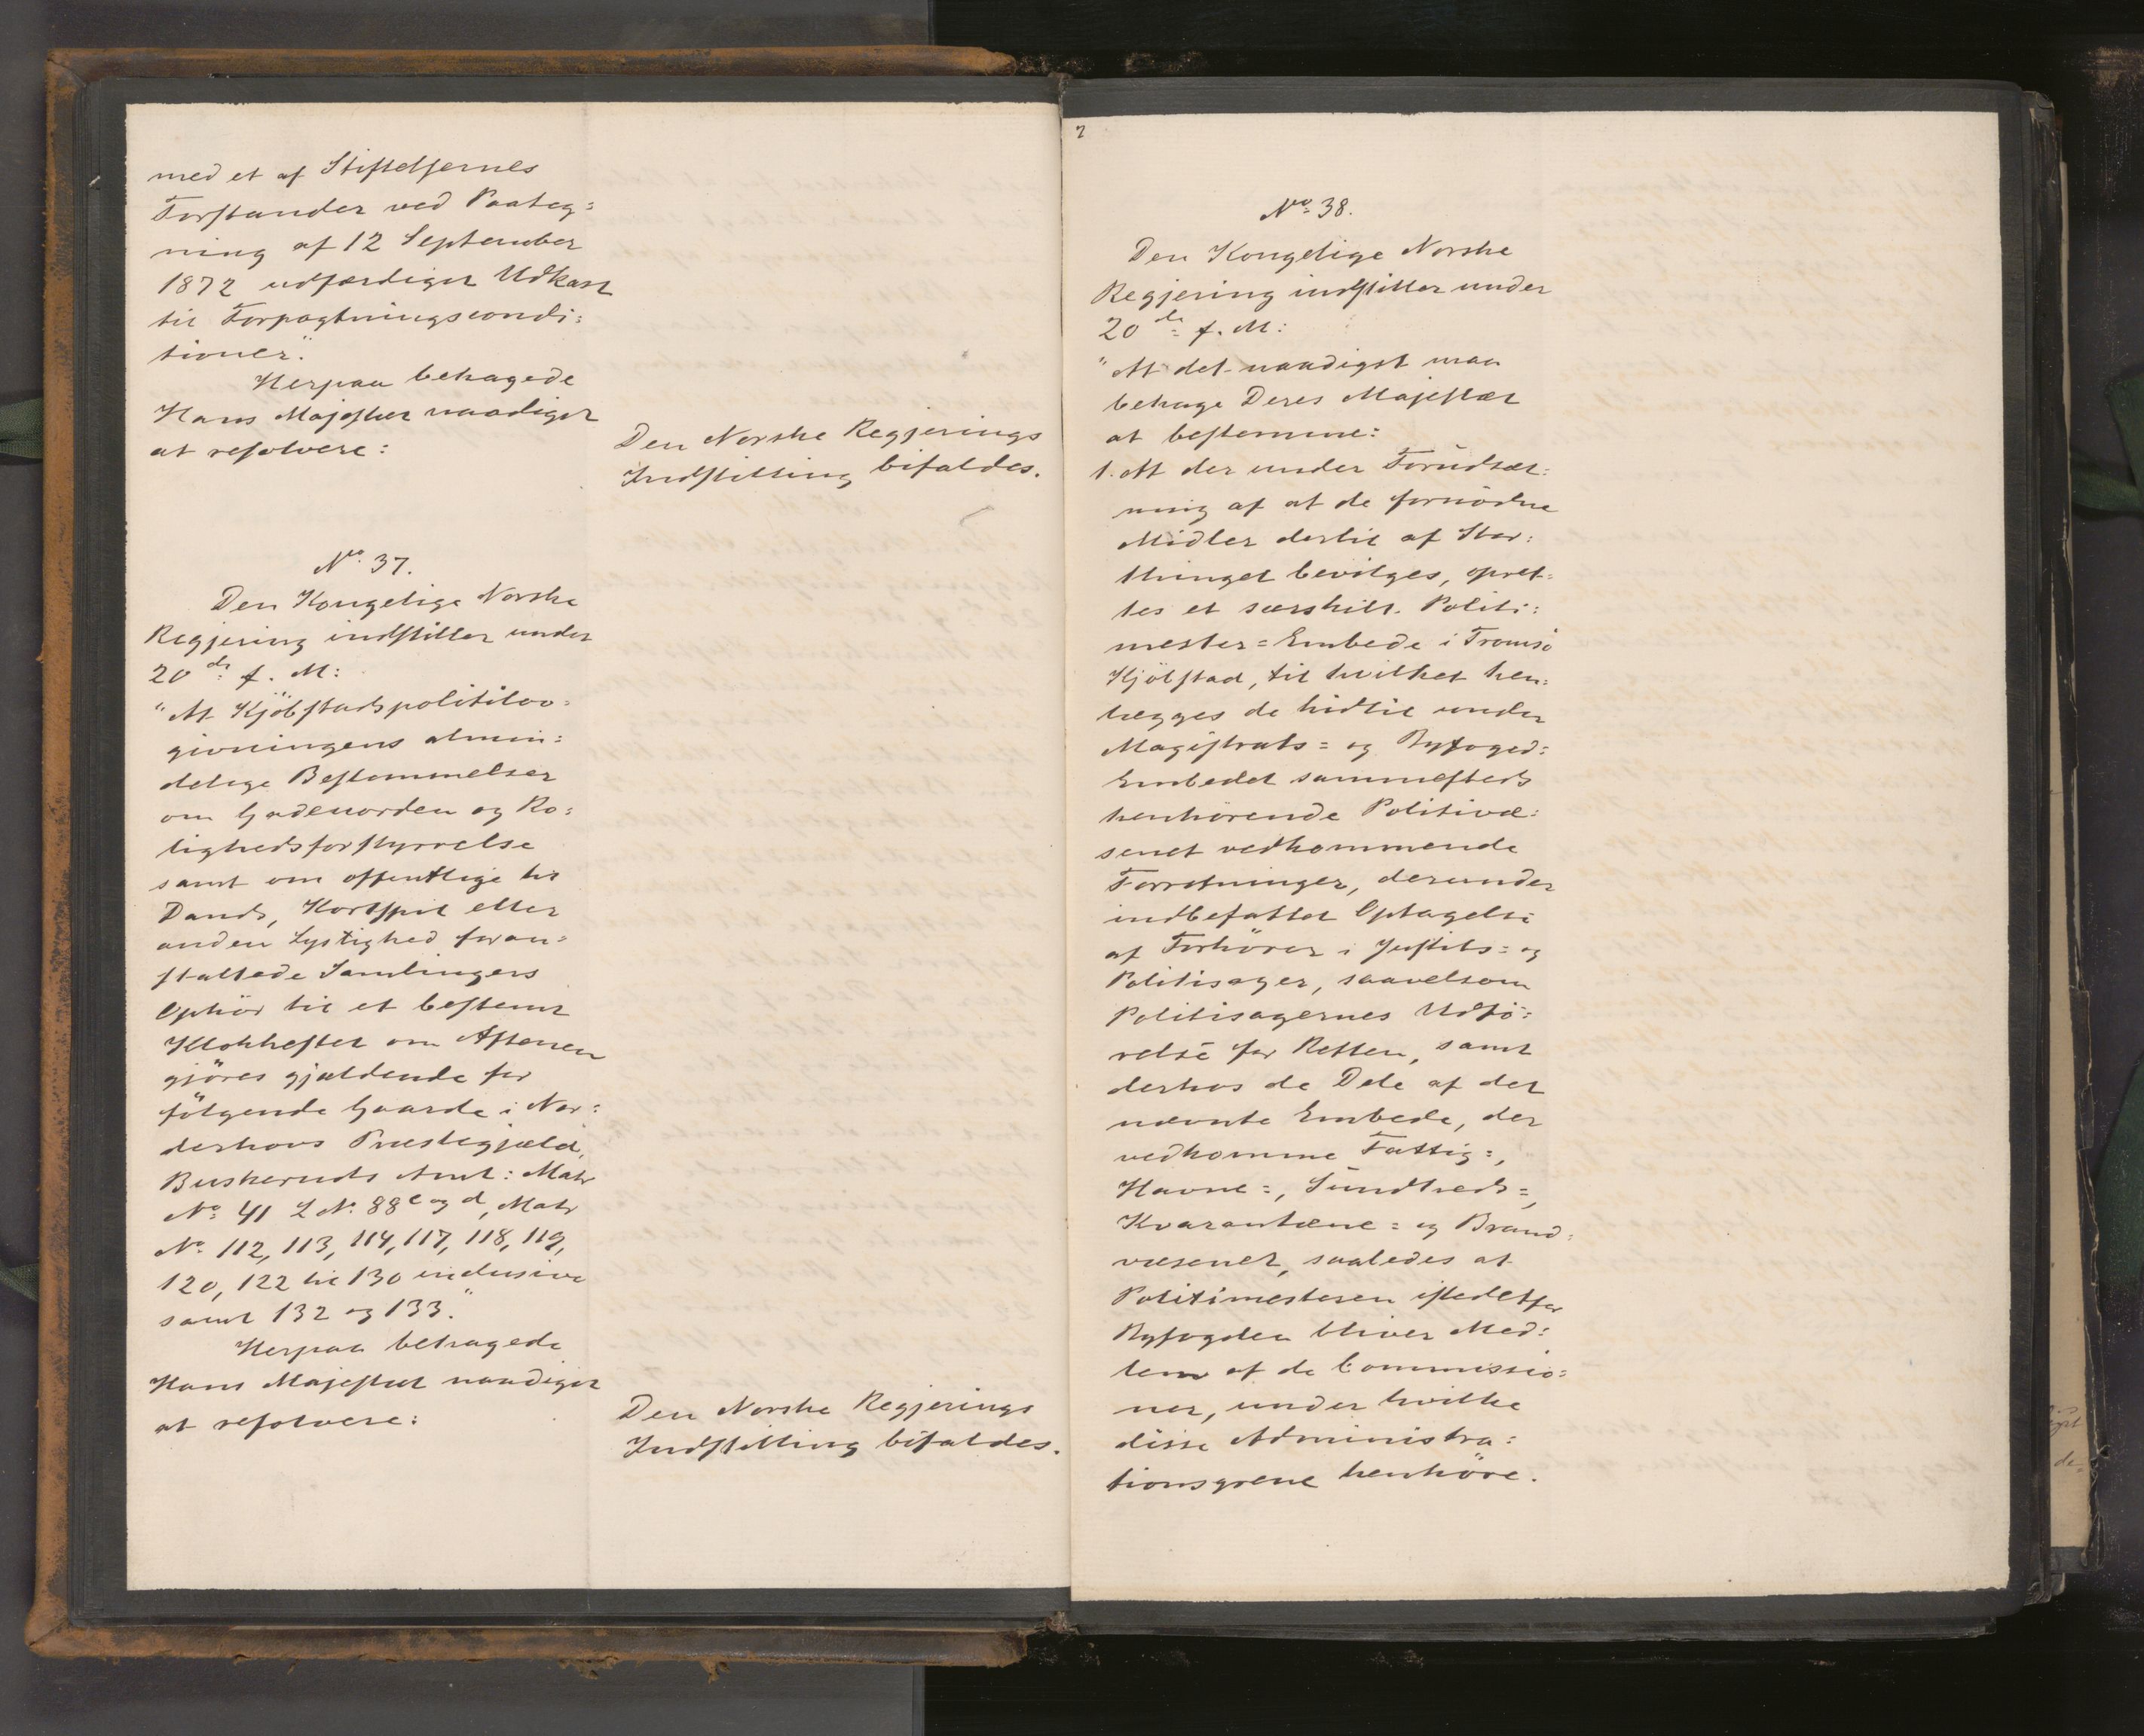 med et af Stiftelsernes
Forstander ved Paateg=
ning af 12 September
1872 udfærdiget Udkast
til Forpagtningscondi=
tioner".
Herpaa behagede
Hans Majestæt naadigst
at resolvere:
Den Norske Regjerings
Indstilling bifaldes.
No. 37.
Den Kongelige Norske
Regjering indstiller under
20de f. M:
"At Kjöbstadspolitilov=
givningens almin=
delige Bestemmelser
om Gadeuorden og Ro=
lighedsforstyrrelse
samt om offentlige til
Dands, Kortspil eller
anden Lystighed foran=
staltede Samlingers
Ophör til et bestemt
Klokkeslet om Aftenen
gjöres gjældende for
fölgende Gaarde i Nor=
derhovs Præstegjæld,
Buskeruds Amt: Matr
No. 41 L No. 88c og d, Matr
No. 112, 113, 114, 117, 118, 119,
120, 122 til 130 inclusive
samt 132 og 133."
Herpaa behagede
Hans Majestæt naadigst
at resolvere:
Den Norske Regjerings
Indstilling bifaldes.
No. 38.
Den Kongelige Norske
Regjering indstiller under
20de f. M:
"At det naadigst maa
behage Deres Majestæt
at bestemme:
1. At der under Forudsæt=
ning af at de fornödne
Midler dertil af Stor=
thinget bevilges, opret=
tes et særskilt Politi=
mester=Embede i Tromsö
Kjöbstad, til hvilket hen=
lægges de hidtil under
Magistrats= og Byfoged=
Embedet sammesteds
henhörende Politivæ=
senet vedkommende
Forretninger, derunder
indbefattet Optagelse
af Forhörer i Justits= og
Politisager, saavelsom
Politisagernes Udfö=
relse for Retten, samt
derhos de Dele af det
nævnte Embede, der
vedkomme Fattig=,
Havne=, Sundheds=,
Kvarantæne= og Brand=
væsenet, saaledes at
Politimesteren istedetfor
Byfogden bliver Med=
lem af de Commissio=
ner, under hvilke
disse Administra=
tionsgrene henhöre.